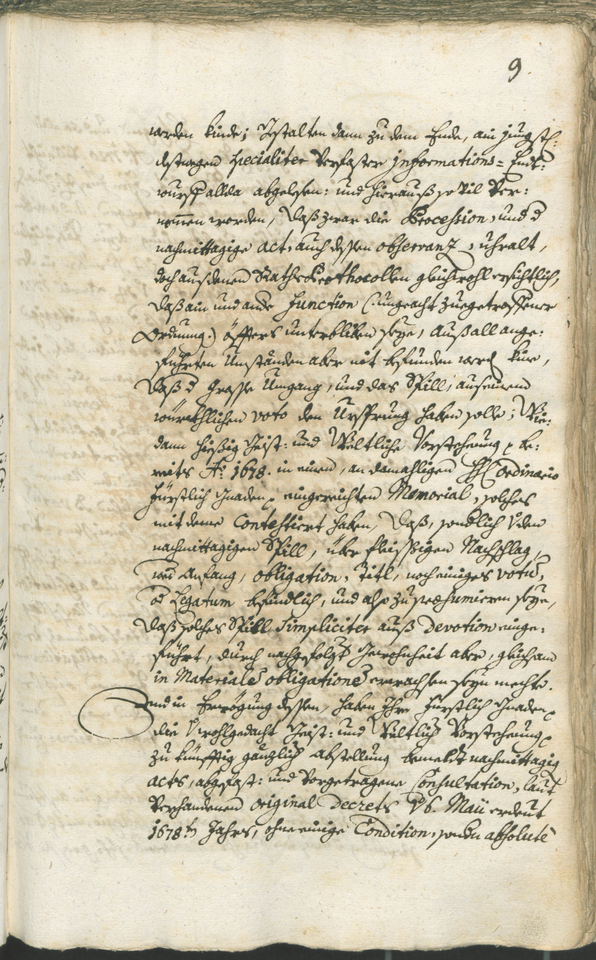 9.
werden kinde; Gestalten dann zu dem Ende, ain jüngst
destwegen specialiter verfaster informations= Ent=
wurff allda abgelesen: und hierauß so vil Ver=
nommen worden, daß zwar die Procession, und d
nachmittagige act, auch dessen observanz, uhralt,
doch aus denen Raths Prothocollen gleichwohl ersichtlich,
daß ain und ande function (ungeacht zuegetroffener
Ordnung) öffters unterbliben seye, auß all ange=
führten Umständen aber nit befunden werd kine,
daß d grosse Umgang, und das Spill, aus einem
würckhlichen voto den Ursprung haben solle; Wie
dann hiesig Geist= und Weltliche Vorstehung be=
reits Ao: 1678. in einem, an damahligen Ordinario
fürstlich Gnaden eingereichten Memorial, solches
mit deme Contestiert haben, daß,
nachmittagigen Spill, über fleissigen Nachschlag,
Anfang, obligation, Titl, noch einiges votū,
od Legatum befindlich, und also zu praesumieren seye,
daß solches Spill simpliciter auß devotion einge=
führt, durch nachgefolgte Gewohnheit aber, gleichsam
in Materiale obligatione erwachsen seyn mechte.
Und in Erwögung dessen, haben Ihre fürstlich Gnaden
die wohlgedacht Geist= und Weltlich Vorstehung
zu künfftig gänzlich abstellung bemeldt nachmittagig
acts, abgefast= und vorgetragene Consultation, laut
verhandenen original Decrets 16. Maii erdeut
1678ten Jahrs, ohne einige Condition, sondn absolutè